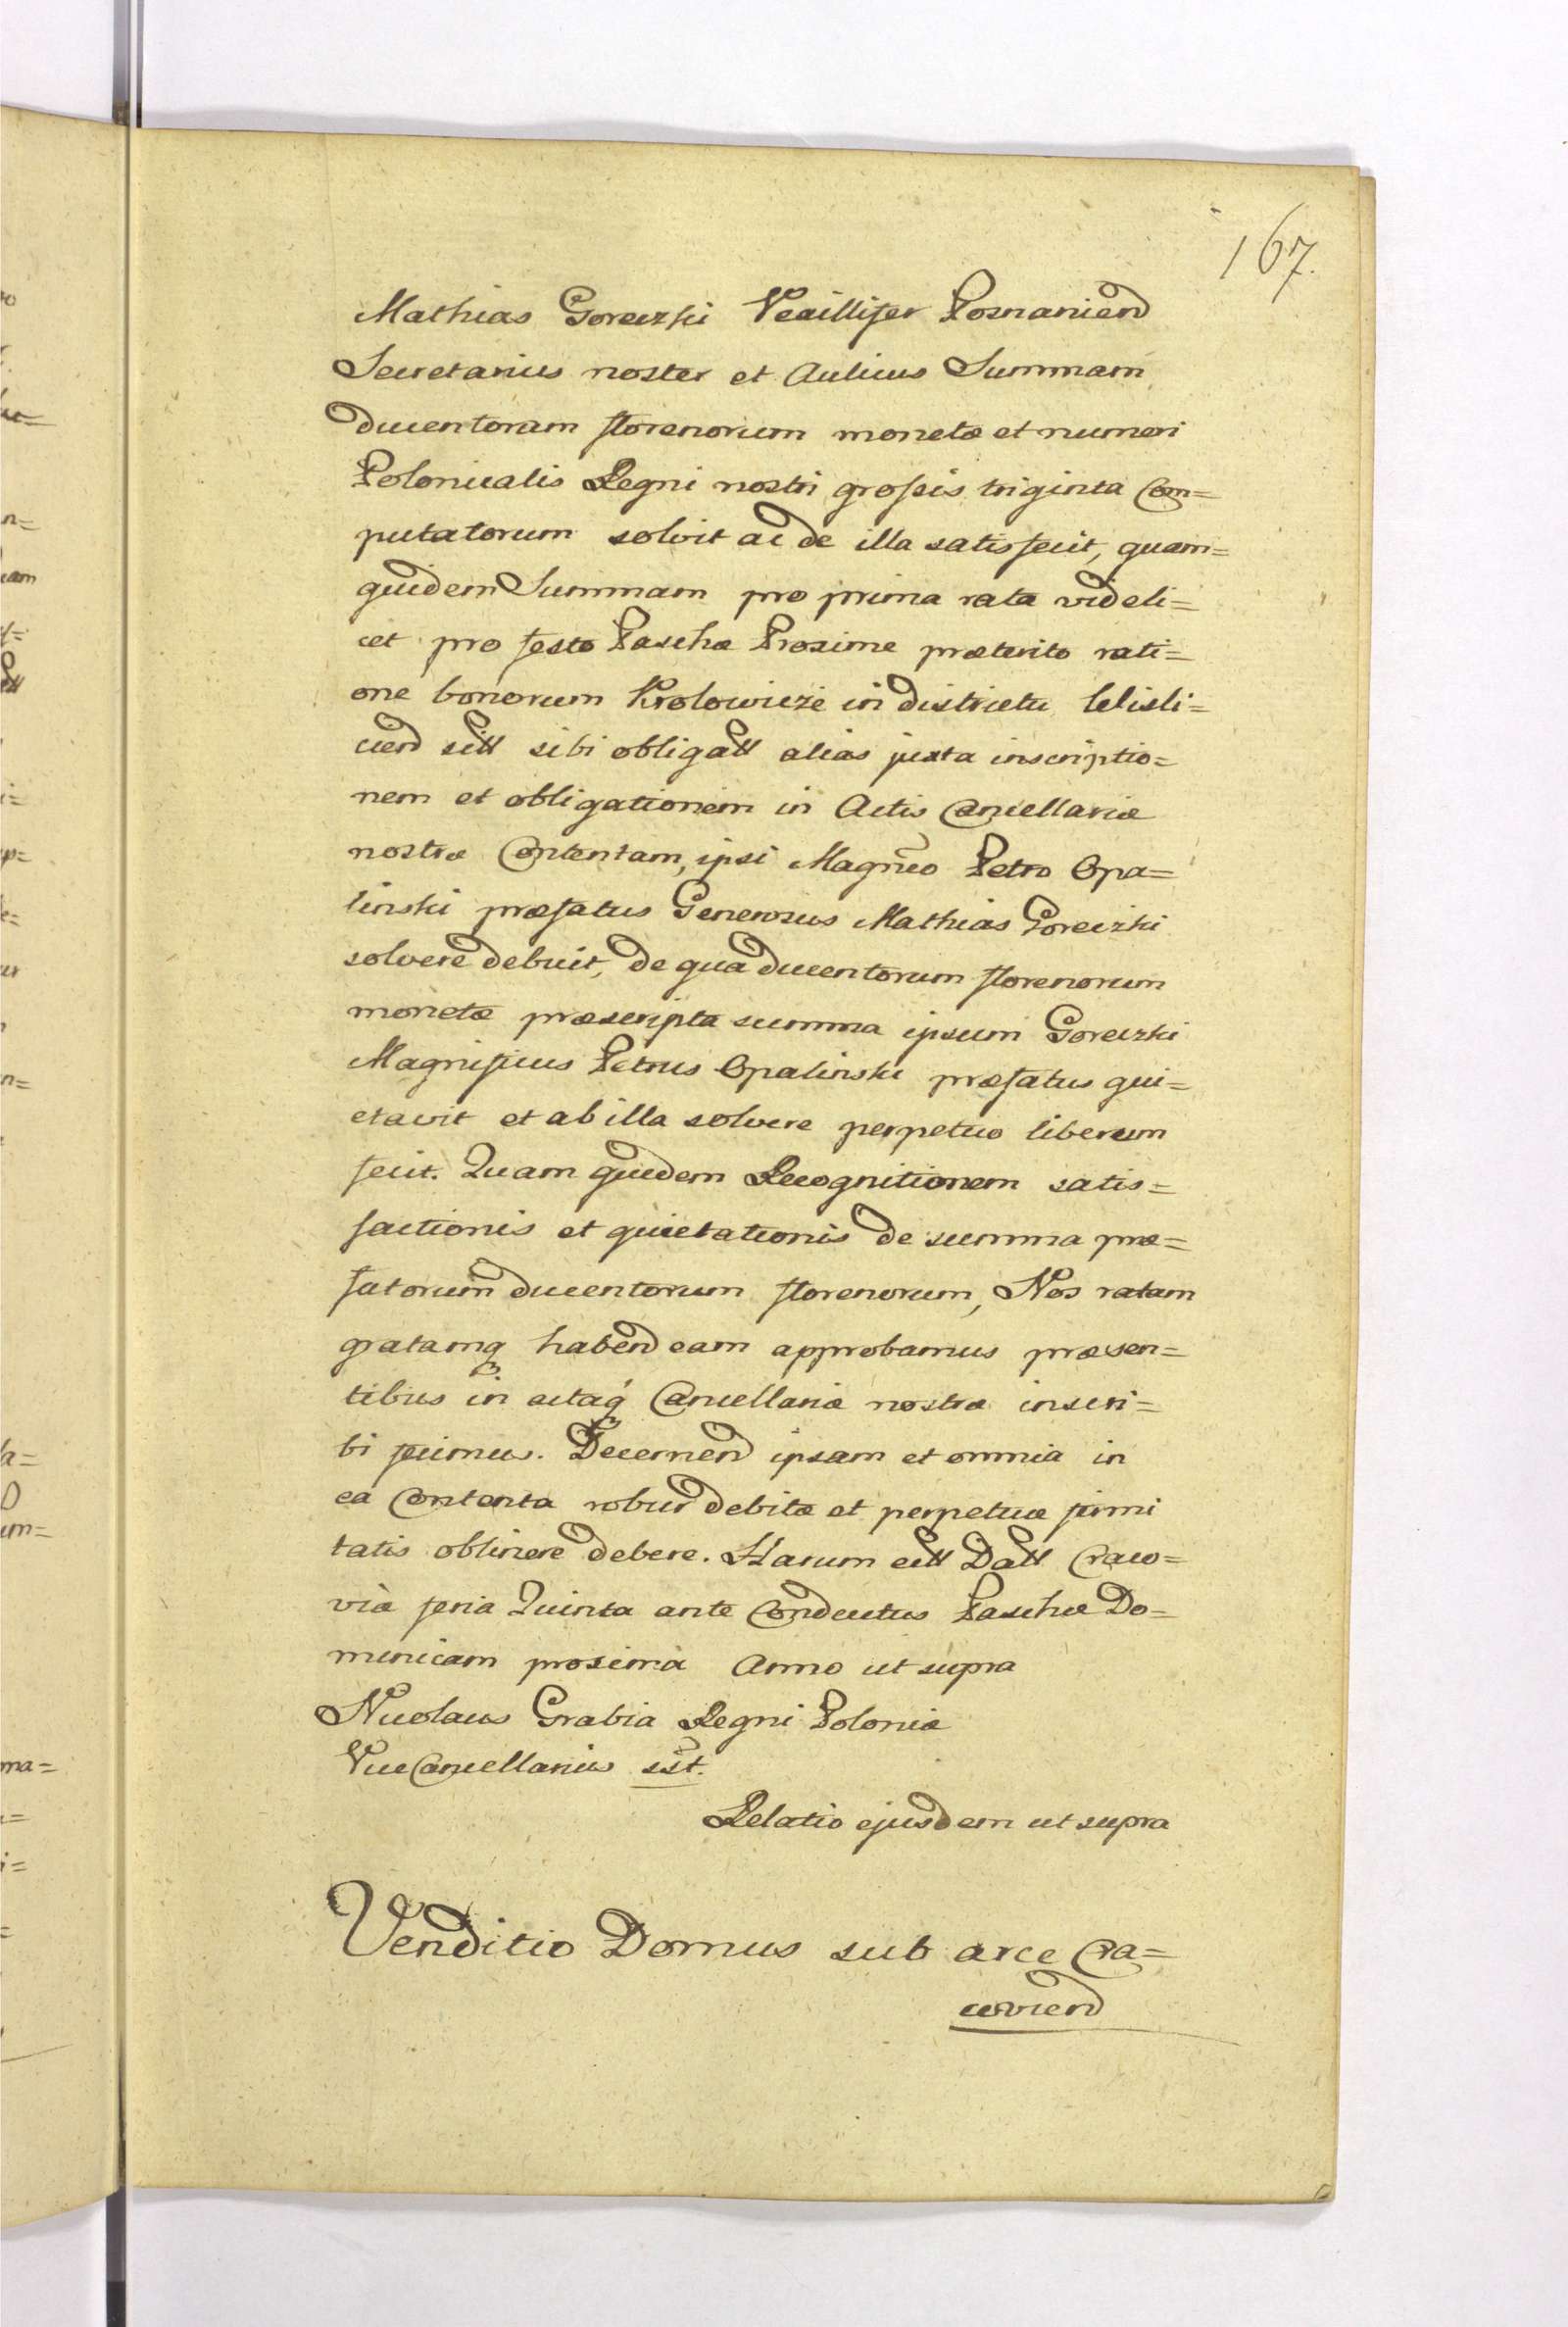 167.
Mathias Goreczki Vexillifer Posnaniend
Secretarius noster et Aulicus Summam
ducentorum florenorum monetæ et numeri
Polonicalis Regni nostri grossis triginta Com=
putatorum solvit ac de illa satisfecit, quam=
quidem Summam pro prima rata videli=
cet pro festo Paschæ Proxime præterito rati=
one bonorum Krolowicze in districtu Wisli=
ciend sitt sibi obligatt alias juxta inscriptio=
nem et obligationem in Actis Cancellariæ
nostræ Contentam, ipsi Magnco Petro Opa=
linski præfatus Generosus Mathias Goreczki
solvere debuit, de qua ducentorum florenorum
monetæ præscripta summa ipsum Goreczki
Magnificus Petrus Opalinski præfatus qui=
etavit et ab illa solvere perpetuo liberum
fecit. Quam quidem Recognitionem satis=
factionis et quietationis de summa præ=
fatorum ducentorum florenorum, Nos ratam
gratamq habend eam approbamus præsen=
tibus in actaq Cancellariæ nostræ inscri=
bi fecimus. Decernend ipsam et omnia in
ea Contenta robur debitæ et perpetuæ firmi
tatis obtinere debere. Harum ett Datt Craco=
vià feria Quinta ante Conductus Paschæ Do=
minicam proxima Anno ut supra
Nicolaus Grabia Regni Poloniæ
ViceCancellarius sst.
Relatio ejusdem ut supra
Venditio Domus sub arce Cra=
coviend